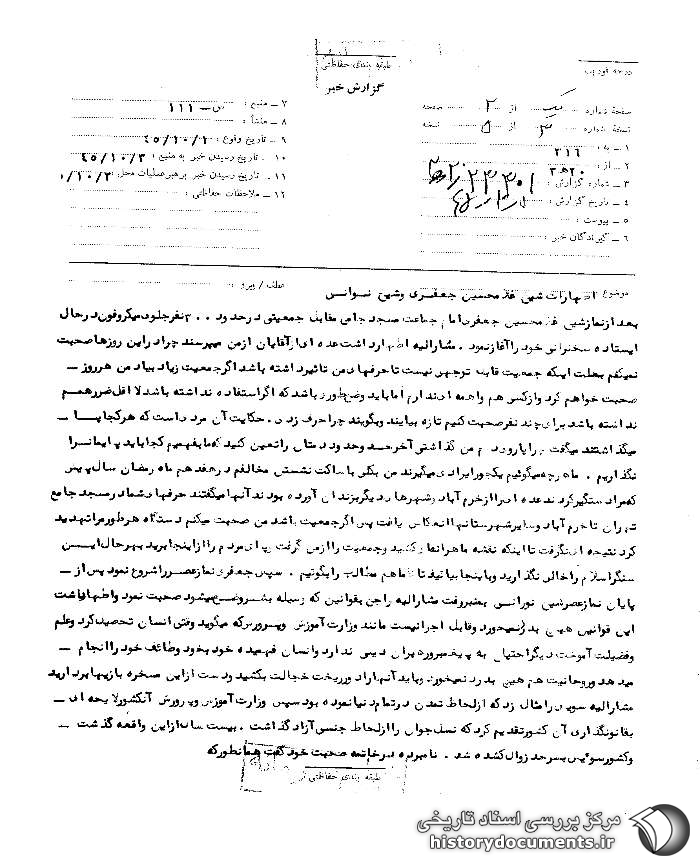 طبقه بندی حفاظتی
گزارش خبر
صفحه شماره یک از ۲ صفحه
نسخه شماره ۳ از ۵ نسخه
۱ – به : ۳۱۶
۲ – از : ۲۰ ه ۳
۳ – شماره گزارش :
۴ – تاریخ گزارش :
۵ – پیوست :
۶ – گیرندگان خبر :
۷ – منبع : س – ۱۱۱
۸ – منشأ :
۹ – تاریخ وقوع : ۴۵/۱۰/۲
۱۰ – تاریخ رسیدن خبر به منبع : ۴۵/۱۰/۳
۱۱ – تاریخ رسیدن خبر برهبر عملیات محل : ۱۰/۳
۱۲ – ملاحظات حفاظتی :
موضوع : اظهارات شیخ غلامحسین جعفری و شیخ نورانی عطف / پیرو :
بعد از نماز شیخ غلامحسین جعفری امام جماعت مسجد جامع مقابل جمعیتی در حدود ۳۰۰ نفر جلو میکروفون در حال
ایستاده سخنرانی خود را آغاز نمود . مشارالیه اظهار داشت عده ای از آقایان از من میپرسند چرا در این روزها صحبت
نمیکنم بعلت اینکه جمعیت قابل توجهی نیست تا حرفهای من تاثیر داشته باشد اگر جمعیت زیاد بیاید من هر روز –
صحبت خواهم کرد و از کسی هم واهمه ای ندارم اما باید وضع طوری باشد که اگر استفاده نداشته باشد لااقل ضرر هم
نداشته باشد برای چند نفر صحبت کنیم تازه بیایند و بگویند چرا حرف زدی . حکایت آن مردی است که هر کجا پا –
میگذاشتند میگفت چرا پا روی دم من گذاشتی آخر حد و حدود دمتان را تعیین کنید که ما بفهمیم کجا باید پایمان را
نگذاریم . ما هر چه میگوئیم یکجور ایرادی میگیرند من بکلی با ساکت نشستن مخالفم در هفدهم ماه رمضان سال پیش
که مرا دستگیر کردند عده ای را از خرم آباد و شهرهای دیگر بزندان آورده بودند آنها میگفتند حرفهای شما در مسجد جامع
تهران تا خرم آباد و سایر شهرستانها انعکاس یافت پس اگر جمعیت باشد من صحبت میکنم دستگاه هر طور مرا تهدید
کرد نتیجه ای نگرفت تا اینکه نقشه ماهرانه کشید و جمعیت را از من گرفت پای مردم را از اینجا برید بهر حال این
سنگر اسلام را خالی نگذارید و باینجا بیائید تا ما هم مطالب را بگوئیم . سپس جعفری نماز عصر را شروع نمود پس از –
پایان نماز عصر شیخ نورانی بمنبر رفت مشارالیه راجع بقوانین که وسیله بشر وضع میشود صحبت نمود و اظهار داشت
این قوانین هیچ بدرد نمیخورد و قابل اجرا نیست مانند وزارت آموزش و پرورش که میگوید وقتی انسان تحصیل کرد و علم
و فضیلت آموخت دیگر احتیاجی به پیغمبر و رهبران دینی ندارد و انسان فهمیده خود بخود وظائف خود را انجام –
میدهد و روحانیت هم هیچ بدرد نمیخورد و باید آنها را دور ریخت خجالت بکشید و دست از این مسخره بازیها بردارید
مشارالیه سوئد را مثال زد که از لحاظ تمدن در تمام دنیا نمونه بود سپس وزارت آموزش و پرورش آنکشور لایحه ای –
بقانونگذاری آن کشور تقدیم کرد که نسل جوان را از لحاظ جنسی آزاد گذاشت . بیست سال از این واقعه گذشت –
و کشور سوئیس بسر حد زوال کشده شد . نامبرده در خاتمه صحبت خود گفت همانطور که
طبقه بندی حفاظتی
مرکز بررسی اسناد تاریخی
historydocuments.ir